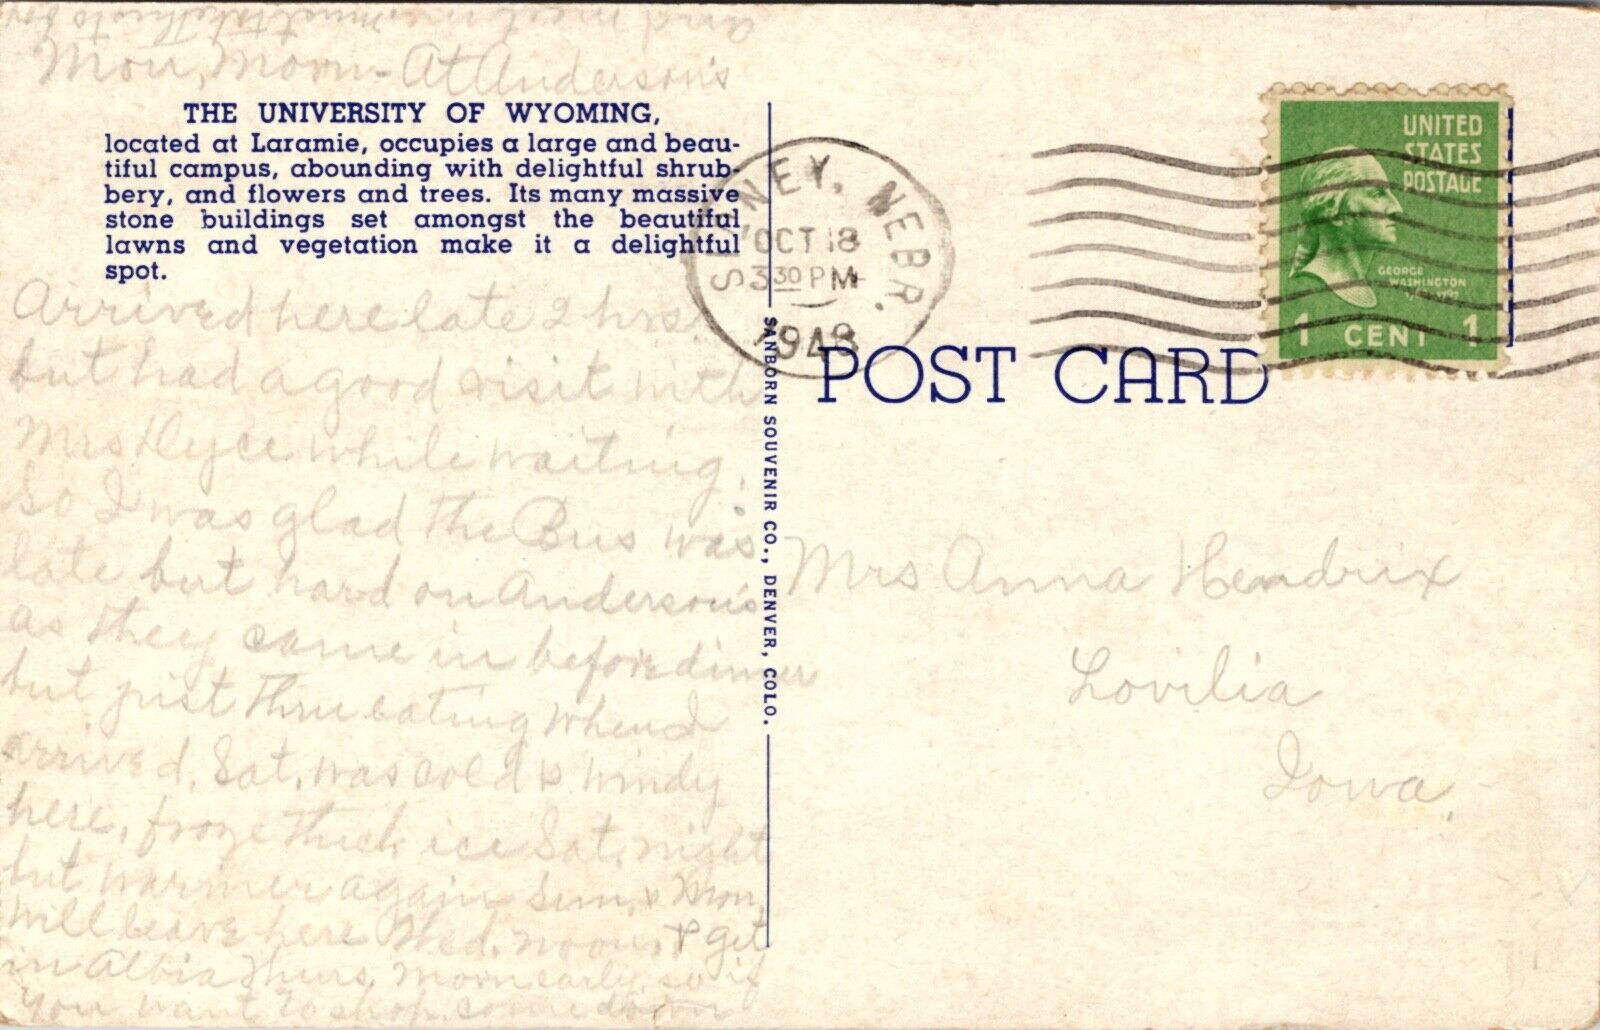 Mon, Morn - At Anderson's
THE UNIVERSITY OF WYOMING,
located at Laramie, occupies a large and beau-
tiful campus, abounding with delightful shrub-
bery, and flowers and trees. Its many massive
stone buildings set amongst the beautiful
lawns and vegetation make it a delightful
spot.
Arrived here late 2 hrs
but had a good visit with
Mrs Dyce while waiting.
So I was glad the Bus was
late but hard on Anderson's
as they came in before dinner
but just thru eating when I
arrived. Sat. was cold & windy
here, froze thick ice Sat. night
but warmer again Sun. & Mon.
Will leave here Wed. noon, & get
in Albia Thurs. Morn early, so if
you want to shop come down
and meet me must take this to
SANBORN SOUVENIR CO., DENVER, COLO.
SIDNEY, NEBR.
OCT 18
3 30 PM
1948
UNITED
STATES
POSTAGE
GEORGE
WASHINGTON
1 CENT 1
POST CARD
Mrs Anna Hendrix
Lovilia
Iowa.